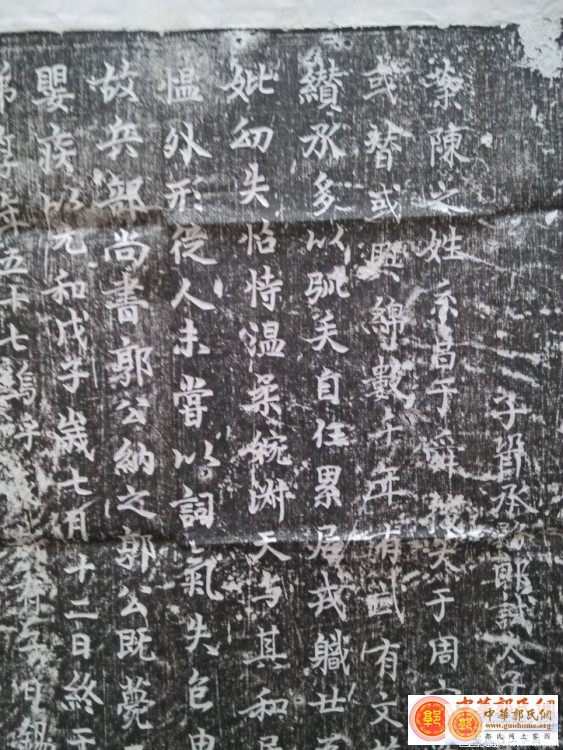 子壻承 郎試太子
叶陳之姓系昌于舜 于周
或替或興綿數千年有武有文
纘承多以弧矢自任累居戎職世
妣幼失怙恃温柔婉淑天与其和
愠外形從人未嘗以詞氣失色
故兵部尚書郭公納之郭公既薨
嬰疾以元和戊子歲七月十二日終
享年五十七嗚乎
中華郭氏網
www.guohome.org
郭氏网上家园